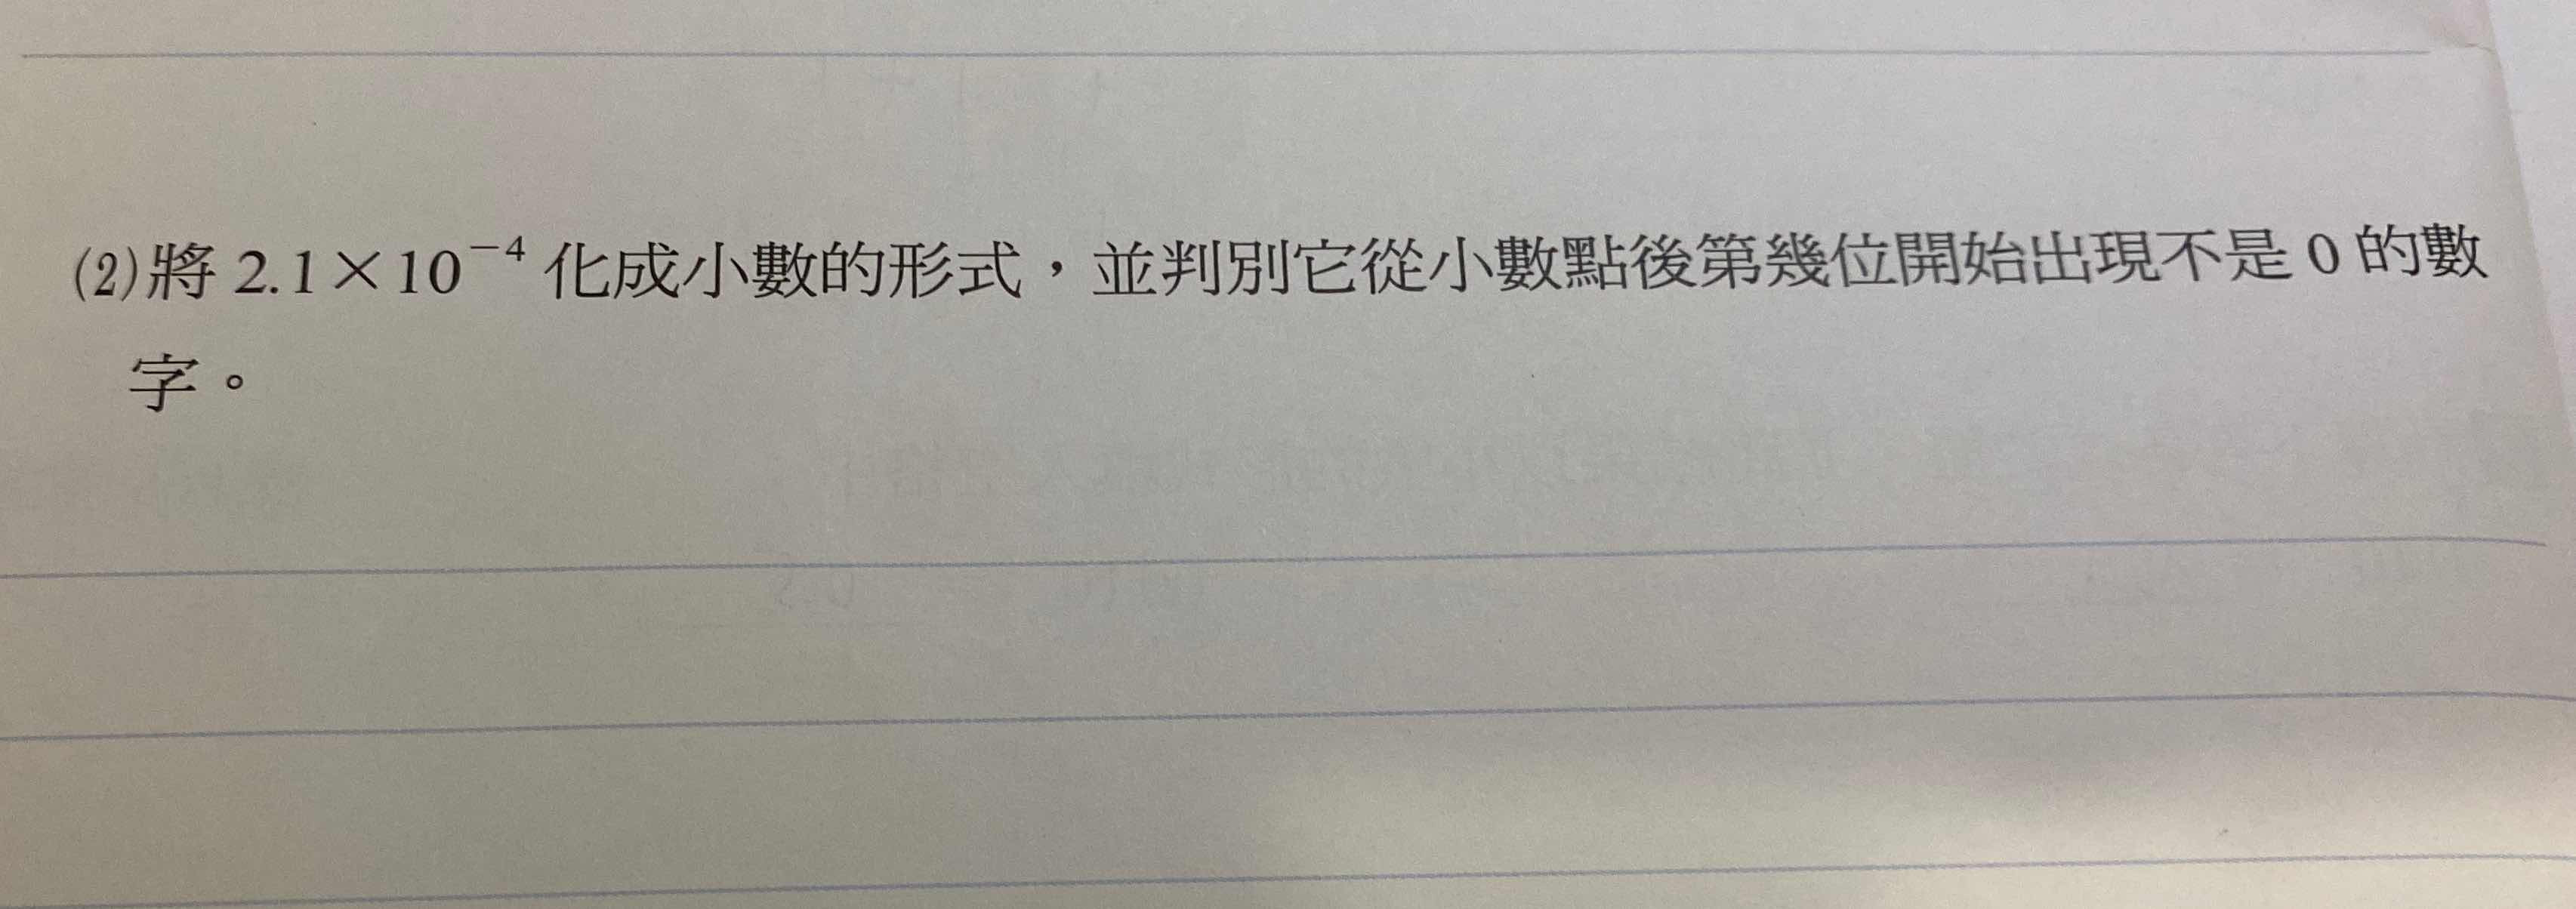 (2)將 2.1×10⁻⁴ 化成小數的形式，並判別它從小數點後第幾位開始出現不是 0 的數
字。